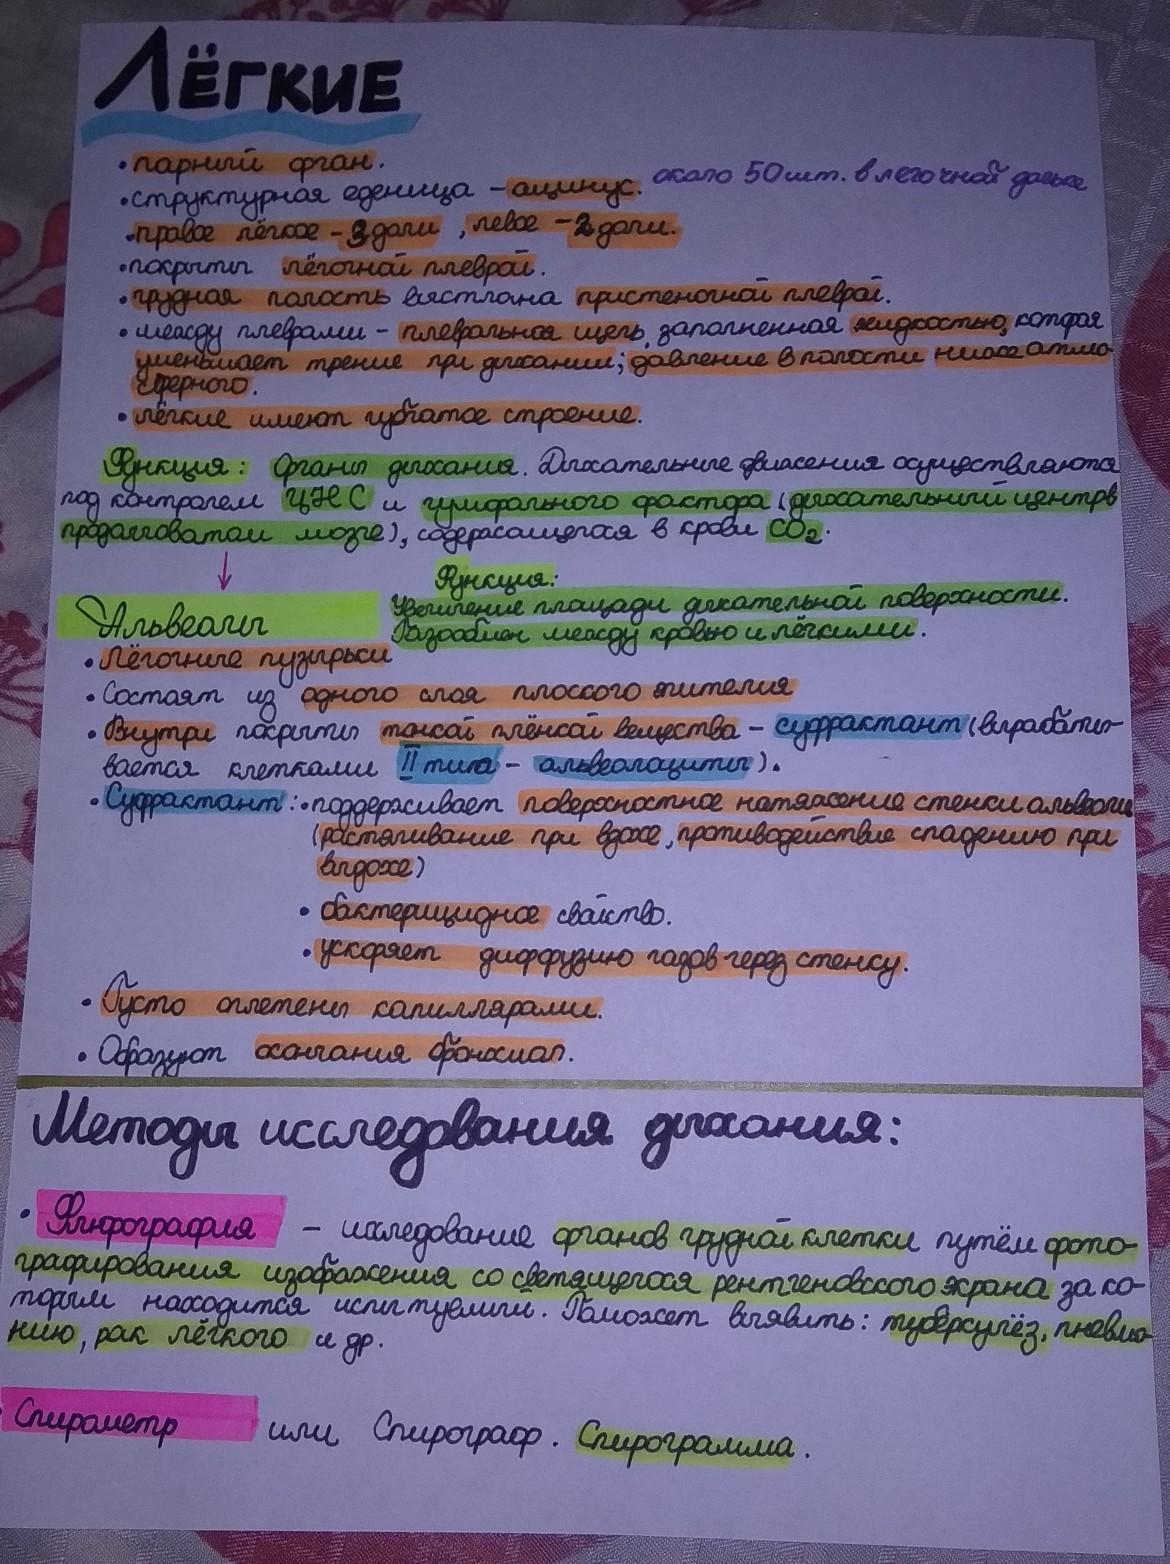 ЛЁГКИЕ
• парный орган.
• структурная еденица – ацинус. около 50 шт. в легочной дольке
• правое лёгкое – 3 доли, левое – 2 доли.
• покрыты лёгочной плеврой.
• грудная полость выстлана пристеночной плеврой.
• между плеврами – плевральная щель, заполненная жидкостью, которая
уменьшает трение при дыхании; давление в полости ниже атмо-
сферного.
• лёгкие имеют губчатое строение.
Функция: Органы дыхания. Дыхательные движения осуществляются
под контролем ЦНС и гуморального фактора (дыхательный центр в
продолговатом мозге), содержащегося в крови CO2.
↓
Функция:
Альвеолы
Увеличение площади дыхательной поверхности.
Газообмен между кровью и лёгкими.
• Лёгочные пузырьки
• Состоят из одного слоя плоского эпителия
• Внутри покрыты тонкой плёнкой вещества – суфрактант (вырабаты-
вается клетками II типа – альвеолоциты).
• Суфрактант: • поддерживает поверхностное натяжение стенки альвеолы
(растягивание при вдохе, противодействие спадению при
выдохе)
• бактерицидное свойство.
• ускоряет диффузию газов через стенку.
• Густо оплетены капиллярами.
• Образуют окончания бронхиол.
Методы исследования дыхания:
• Флюрография – исследование органов грудной клетки путём фото-
графирования изображения со светящегося рентгеновского экрана за ко-
торым находится испытуемый. Поможет выявить: туберкулёз, пневмо-
нию, рак лёгкого и др.
• Спирометр или Спирограф. Спирограмма.